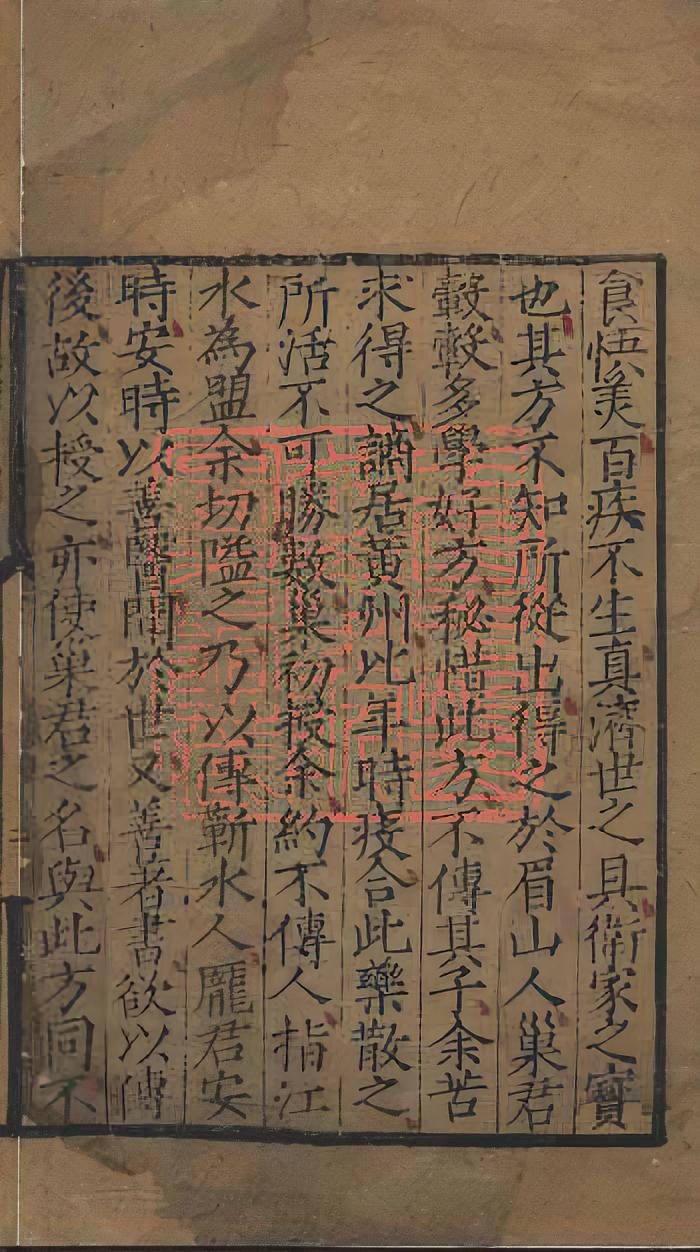 食倍美百疾不生真濟世之具衛家之寶
也其方不知所從出得之於眉山人巢君
糓糓多學好方秘惜此方不傳其子余苦
求得之謫居黃州比年時疫合此藥散之
所活不可勝數巢初授余約不傳人指江
水為盟余切隘之乃以傳蘄水人龐君安
時安時以善醫聞於世又善著書欲以傳
後故以授之亦使巢君之名與此方同不